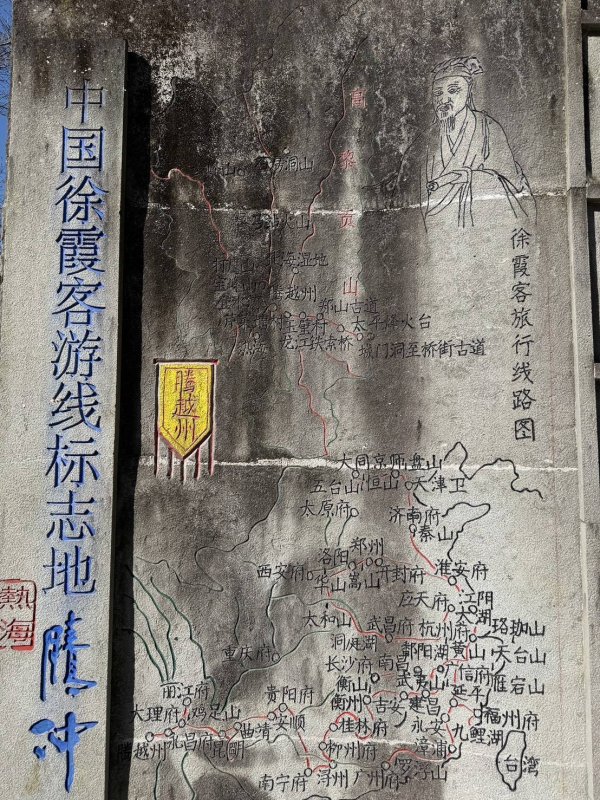 中国徐霞客游线标志地
腾冲
熱海
徐霞客旅行线路图
高黎贡山
腾越州
火山
湿地
越州
郑山古道
村
太平
火台
龙江铁索桥
城门洞至桥街古道
大同
京师
盘山
五台山
恒山
天津卫
太原府
济南府
泰山
洛阳
郑州
西安府
华山
嵩山
开封府
淮安府
应天府
江阳
太和山
武昌府
杭州府
珞珈山
天台山
洞庭湖
鄱阳湖
黄山
重庆府
长沙府
南昌
广信府
雁宕山
丽江府
衡山
武夷山
大理府
鸡足山
贵阳府
衡州
吉安
建昌
延平
福州府
安顺
桂林府
永安
九鲤湖
腾越州
永昌府
昆明
曲靖
柳州府
漳浦
台湾
南宁府
浔州
广州府
罗浮山